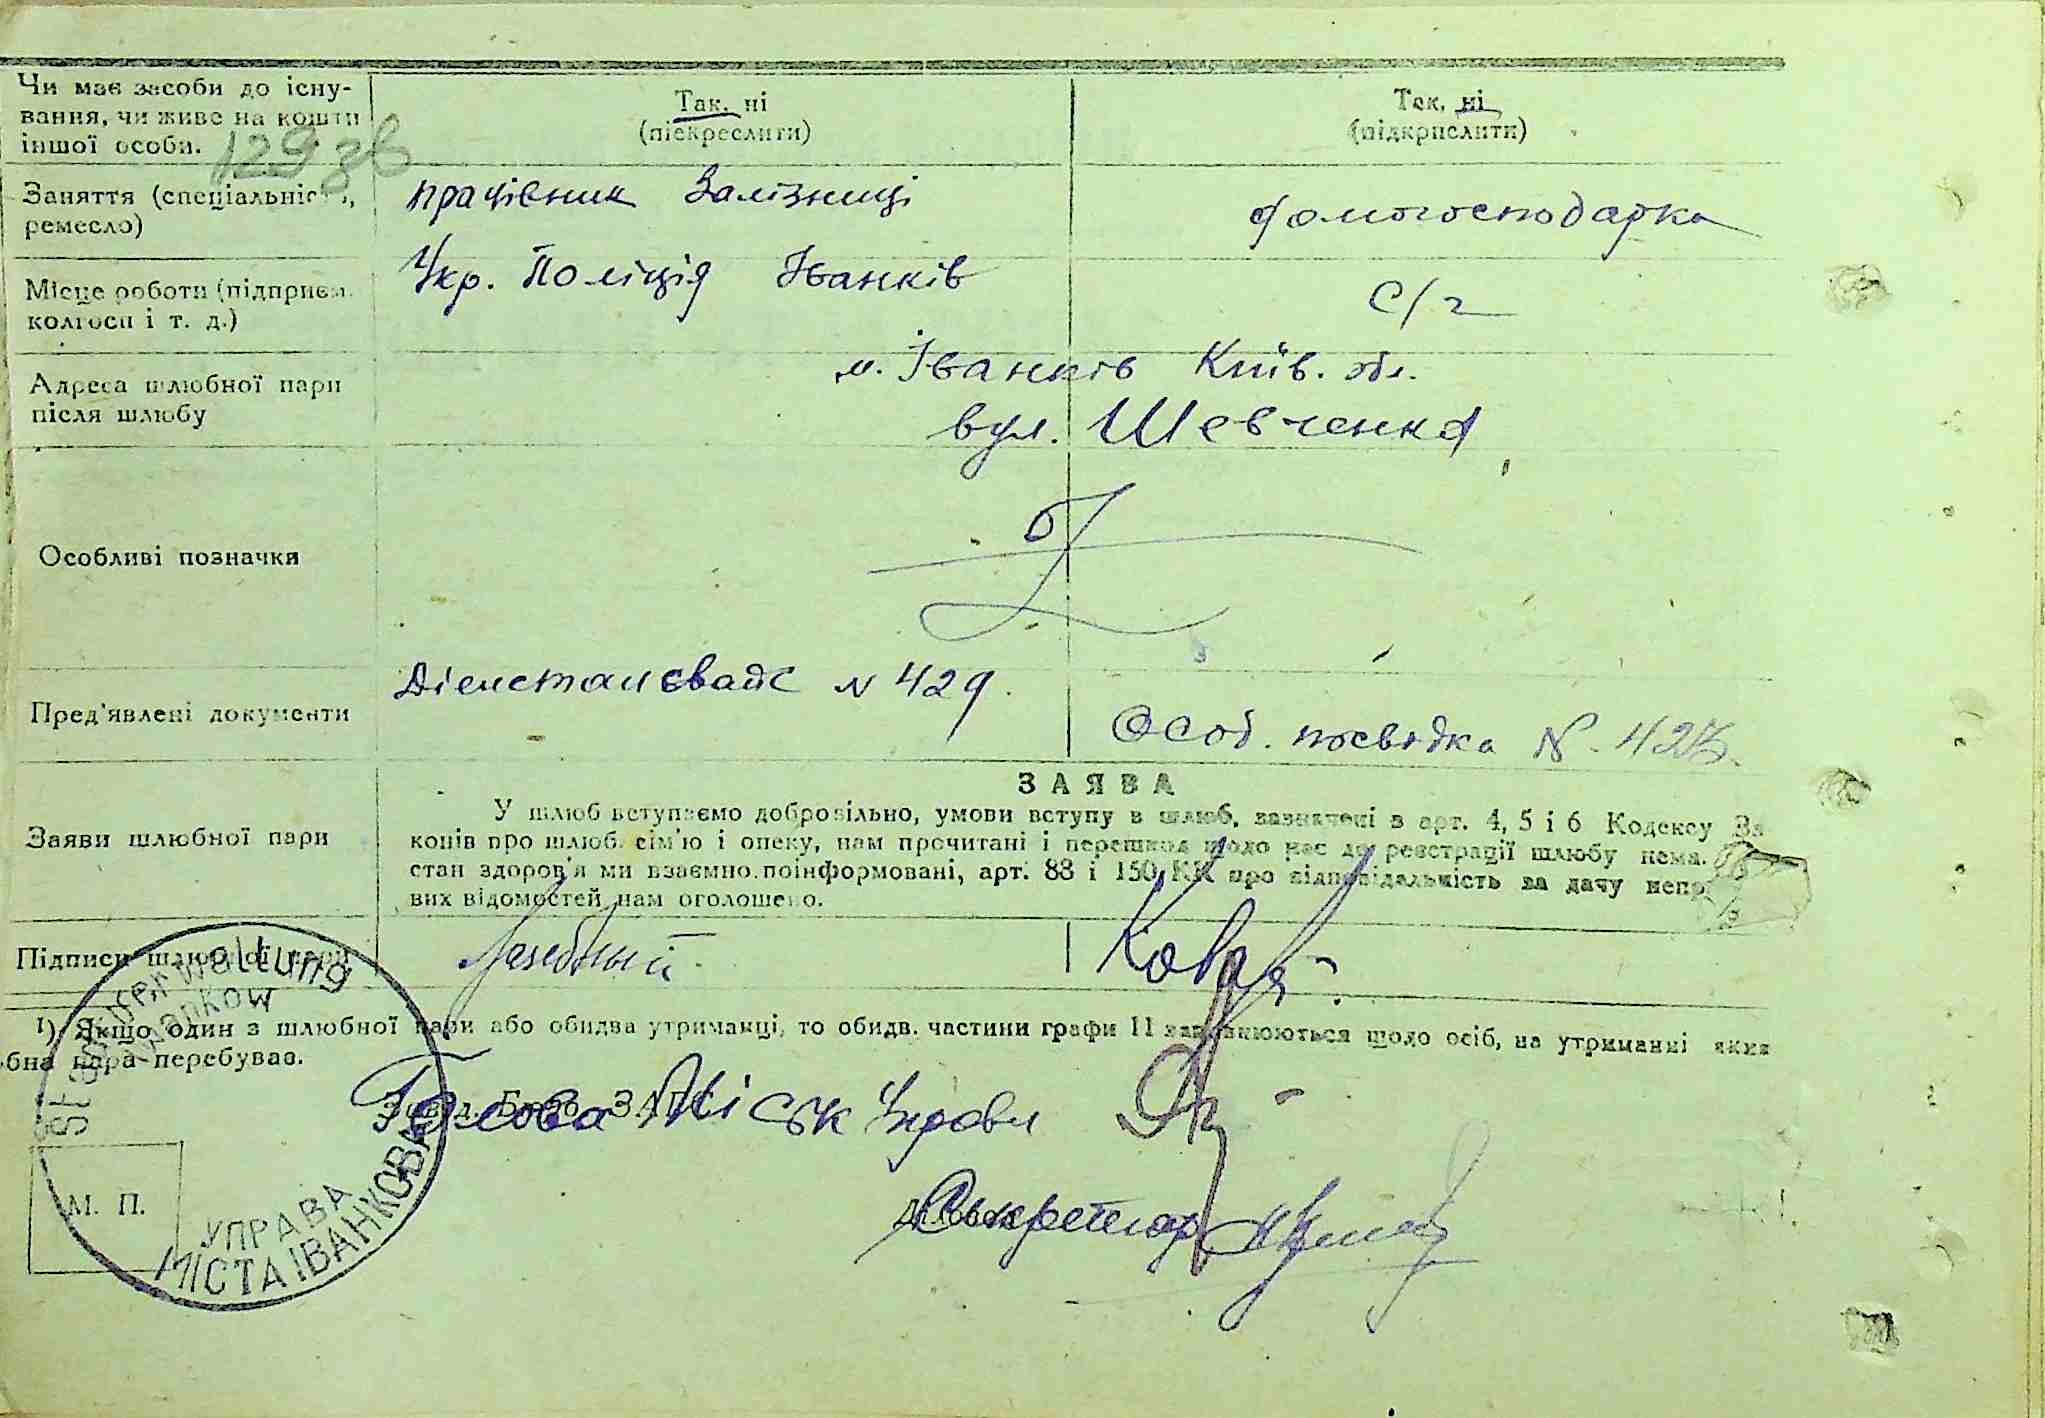 Чи має засоби до існу-
вання, чи живе на кошти
іншої особи.
129 зв
Так, ні
(піекреслити)
Так, ні
(підкрислити)
Заняття (спеціальність,
ремесло)
працівник Залізниці
домогосподарка
Місце роботи (підприєм.
колгосп і т. д.)
Укр. Поліція Іванків
с/г
Адреса шлюбної пари
після шлюбу
м. Іванків Київ. обл.
вул. Шевченка
Особливі позначки
Пред'явлені документи
N 429.
Особ. посвідка N.
Заяви шлюбної пари
ЗАЯВА
У шлюб вступаємо добровільно, умови вступу в шлюб, зазначені в арт. 4, 5 і 6 Кодексу За
конів про шлюб, сім'ю і опеку, нам прочитані і перешкод щодо нас до реєстрації шлюбу нема.
стан здоров'я ми взаємно поінформовані, арт. 88 і 150 КК про відповідальність за дачу непр
вих відомостей нам оголошено.
Підписи шлюбної пари
1) Якщо один з шлюбної пари або обидва утриманці, то обидв. частини графи 11 заповнюються щодо осіб, на утриманні яких
бна пара перебуває.
Голова Міськ Управи
Секретар
М. П.
Stadtverwaltung
Iwankow
УПРАВА
МІСТА ІВАНКОВА